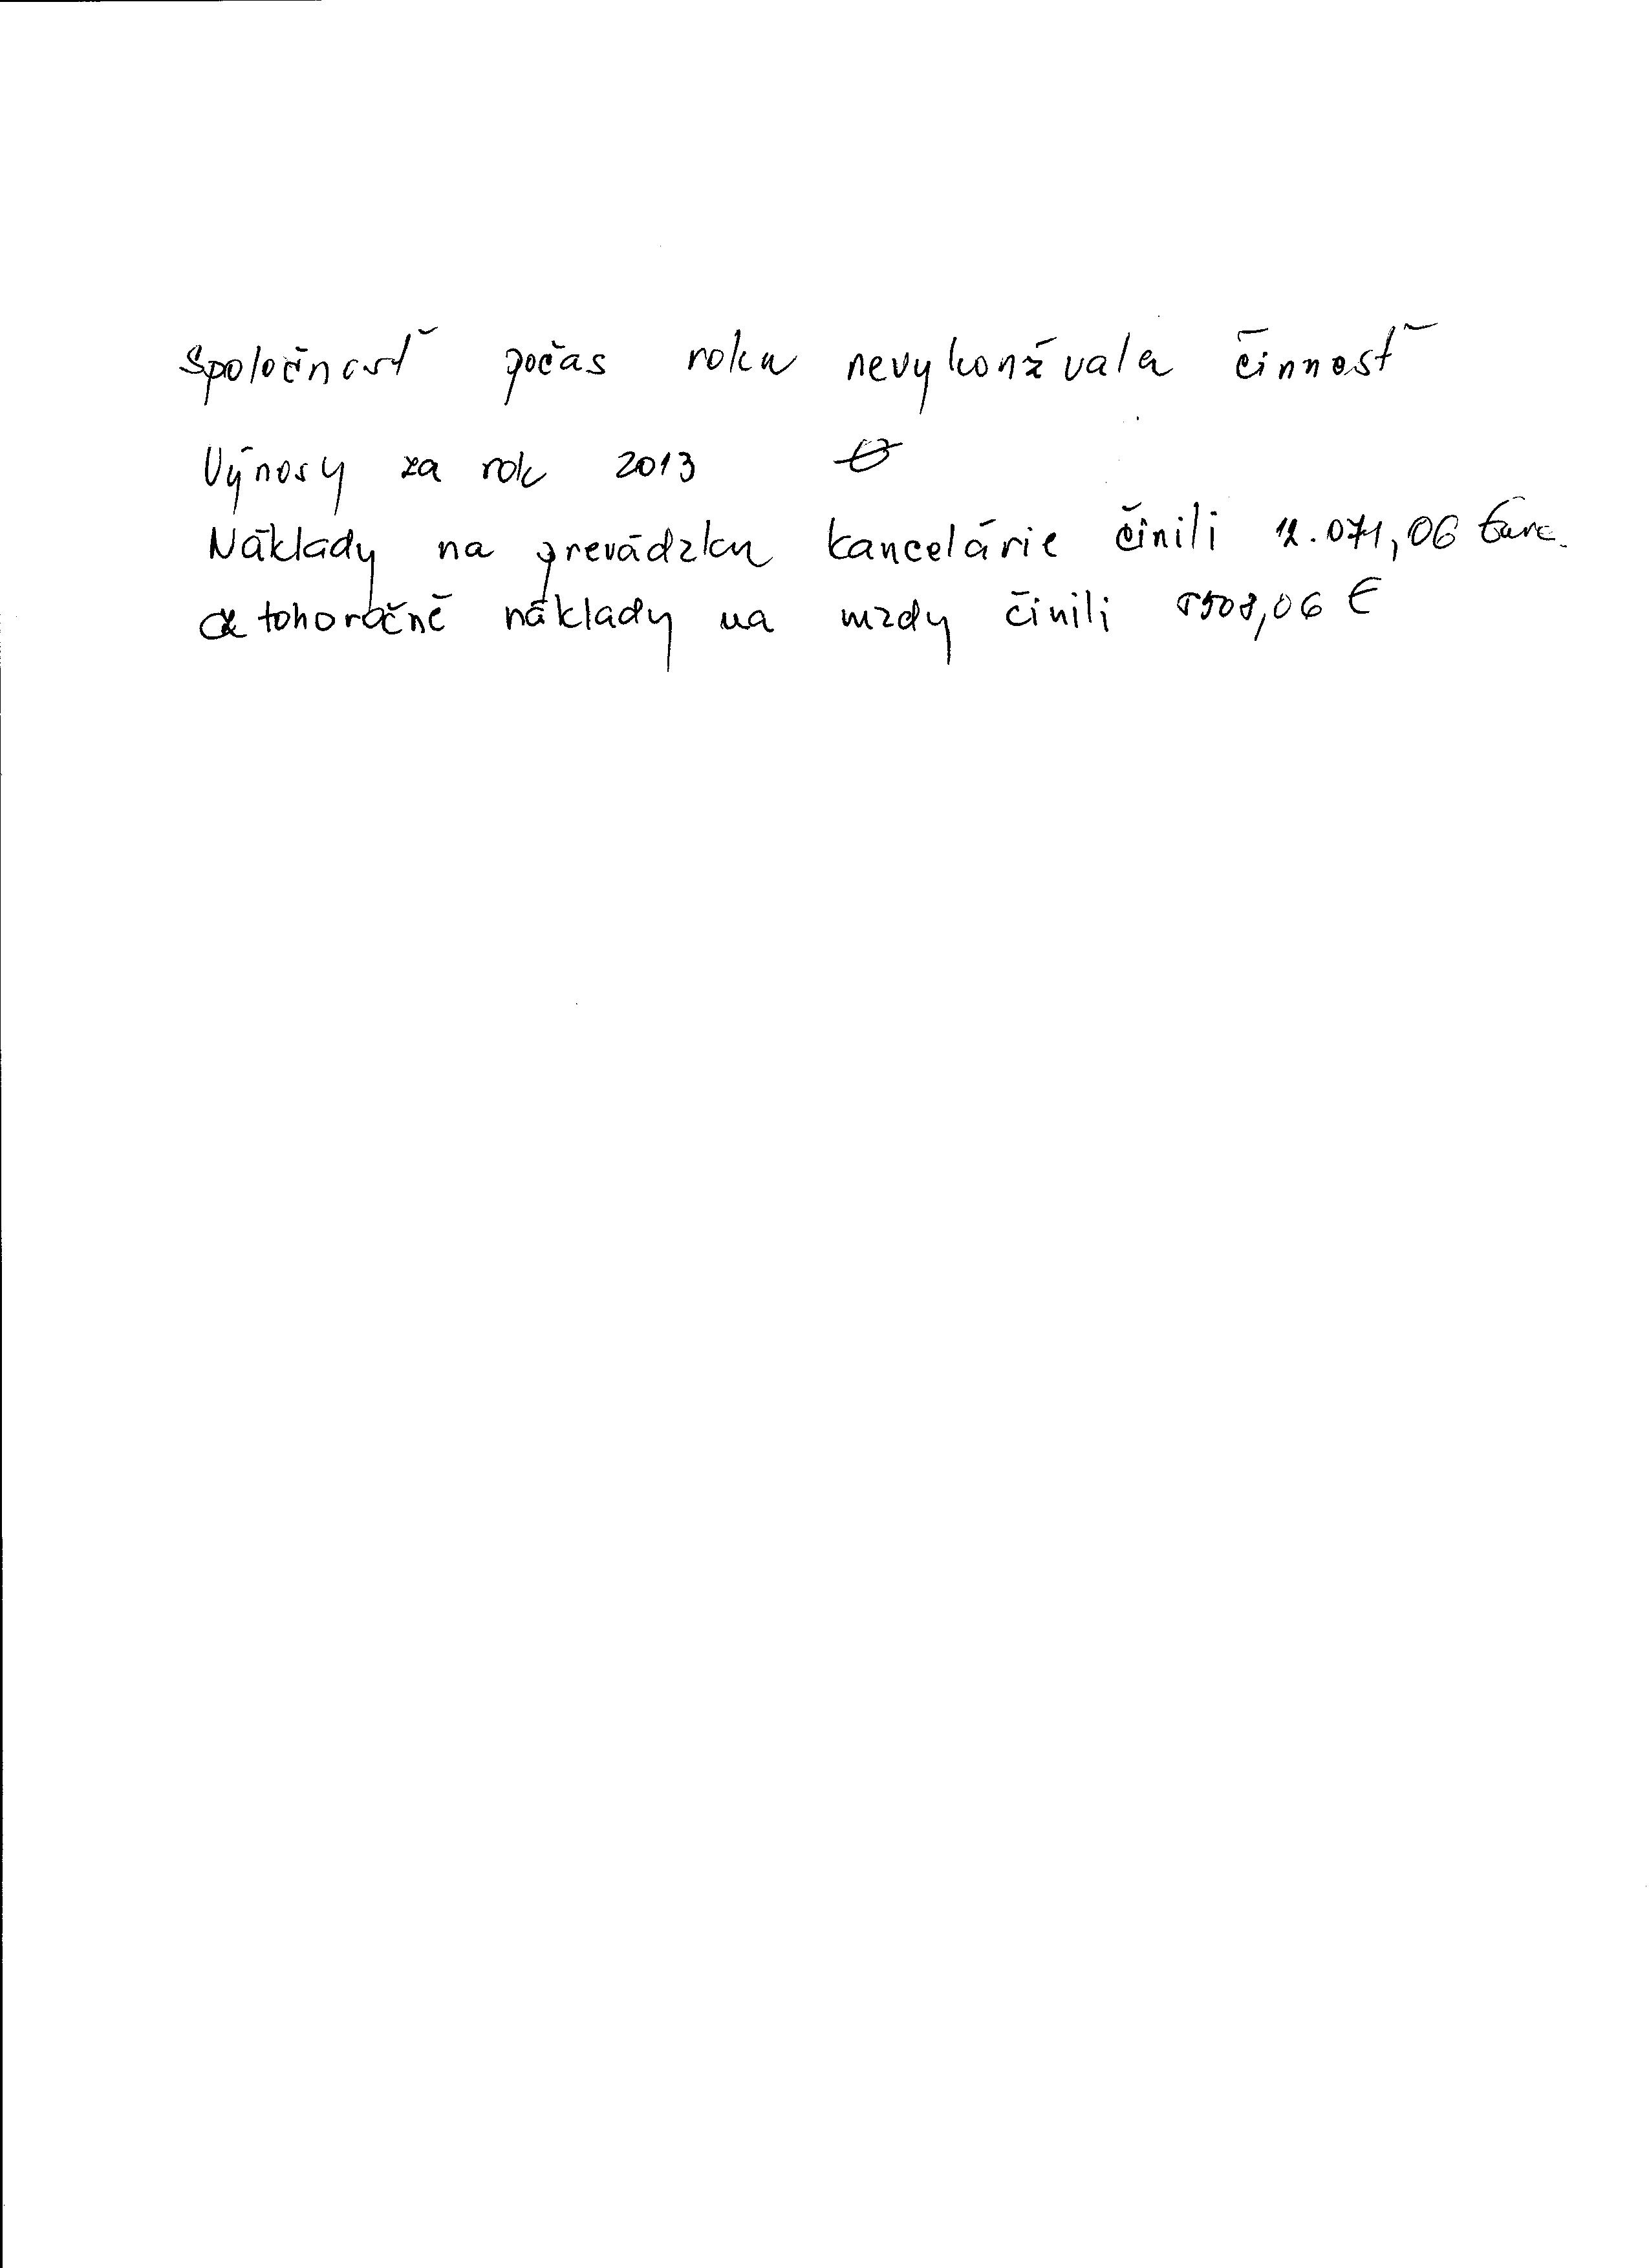 Spoločnosť počas roku nevykonávala činnosť
Výnosy za rok 2013 0
Náklady na prevádzku kancelárie činili 12.071,06 Euro.
z tohoročné náklady na mzdy činili